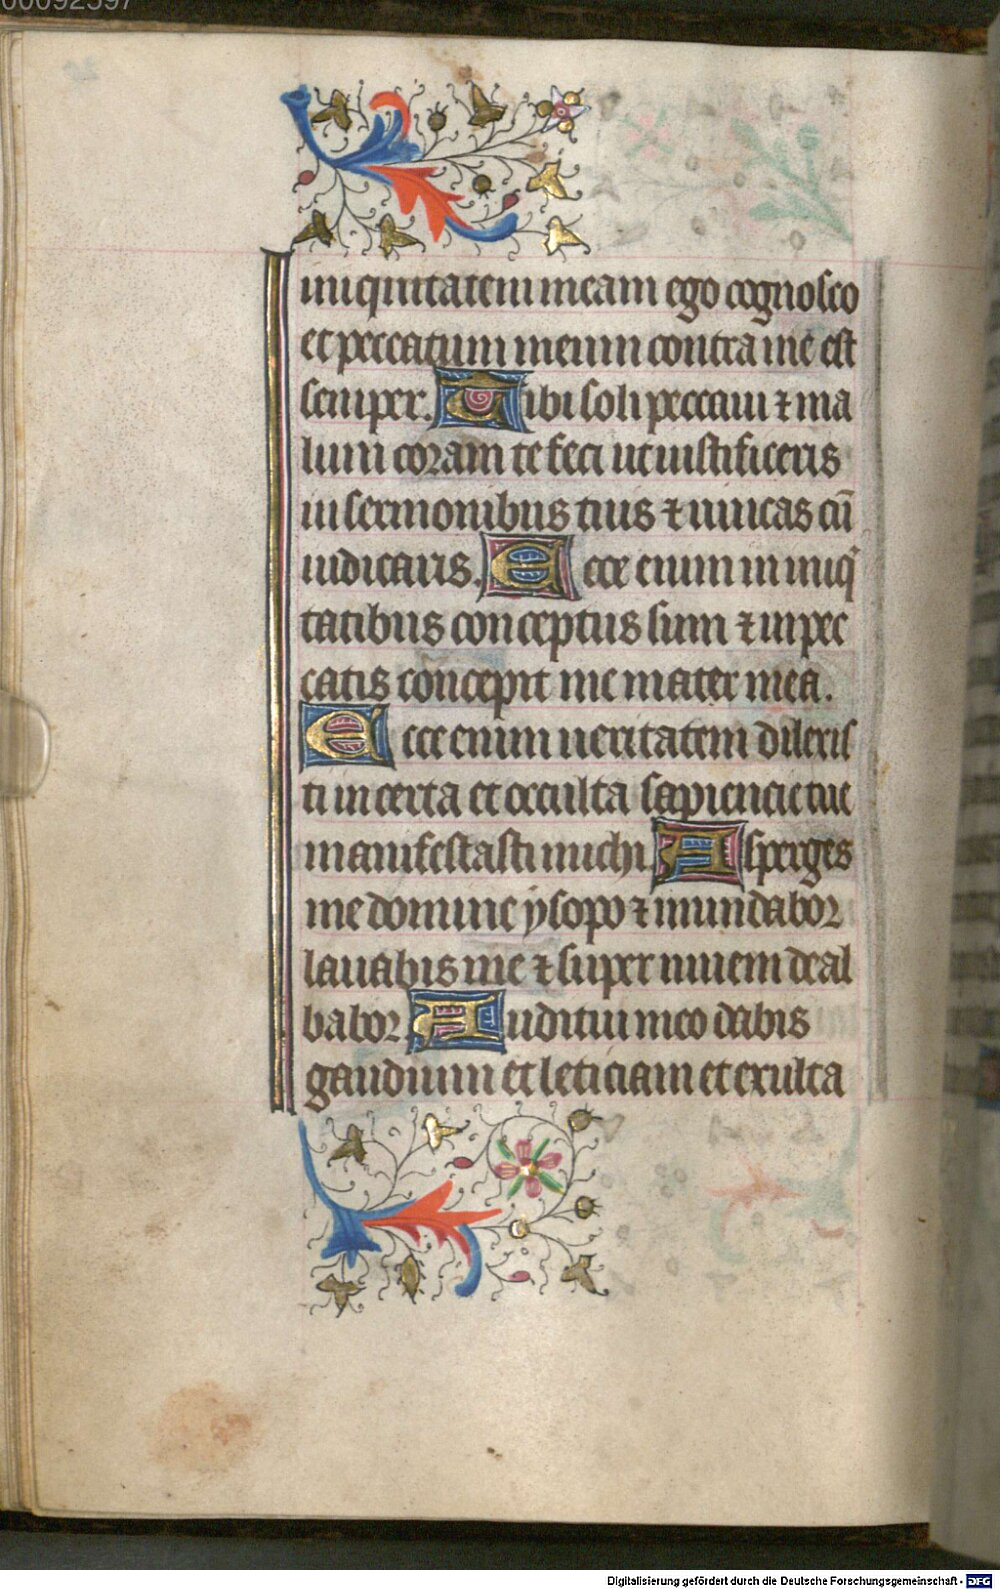 iniquitatem meam ego cognosco
et peccatum meum contra me est
semper. Tibi soli peccaui ⁊ ma
lum coram te feci ut iustificeris
in sermonibus tuis ⁊ uincas cū
iudicaris. Ecce enim in iniq̄
tatibus conceptus sum ⁊ in pec
catis concepit me mater mea.
Ecce enim ueritatem dilexis
ti incerta et occulta sapiencie tue
manifestasti michi. Asperges
me domine ysopo ⁊ mundabor
lauabis me ⁊ super niuem deal
babor Auditui meo dabis
gaudium et leticiam et exulta
Digitalisierung gefördert durch die Deutsche Forschungsgemeinschaft - DFG